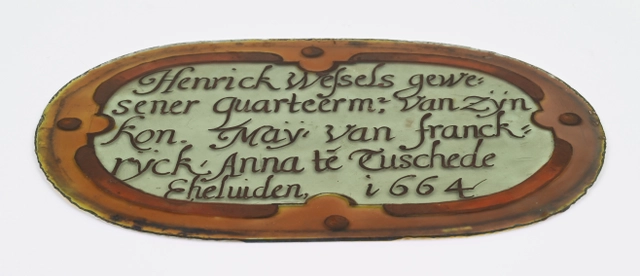 Henrick Wessels gewe⸗
sener quarteerm: van zÿn
kon. Maÿ. van franck⸗
ryck. Anna te Tuschede
Eheluiden, i664